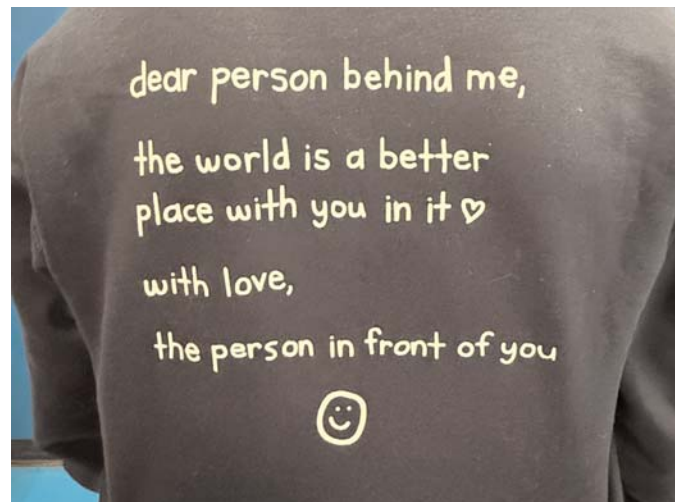 dear person behind me,
the world is a better
place with you in it ♡
with love,
the person in front of you